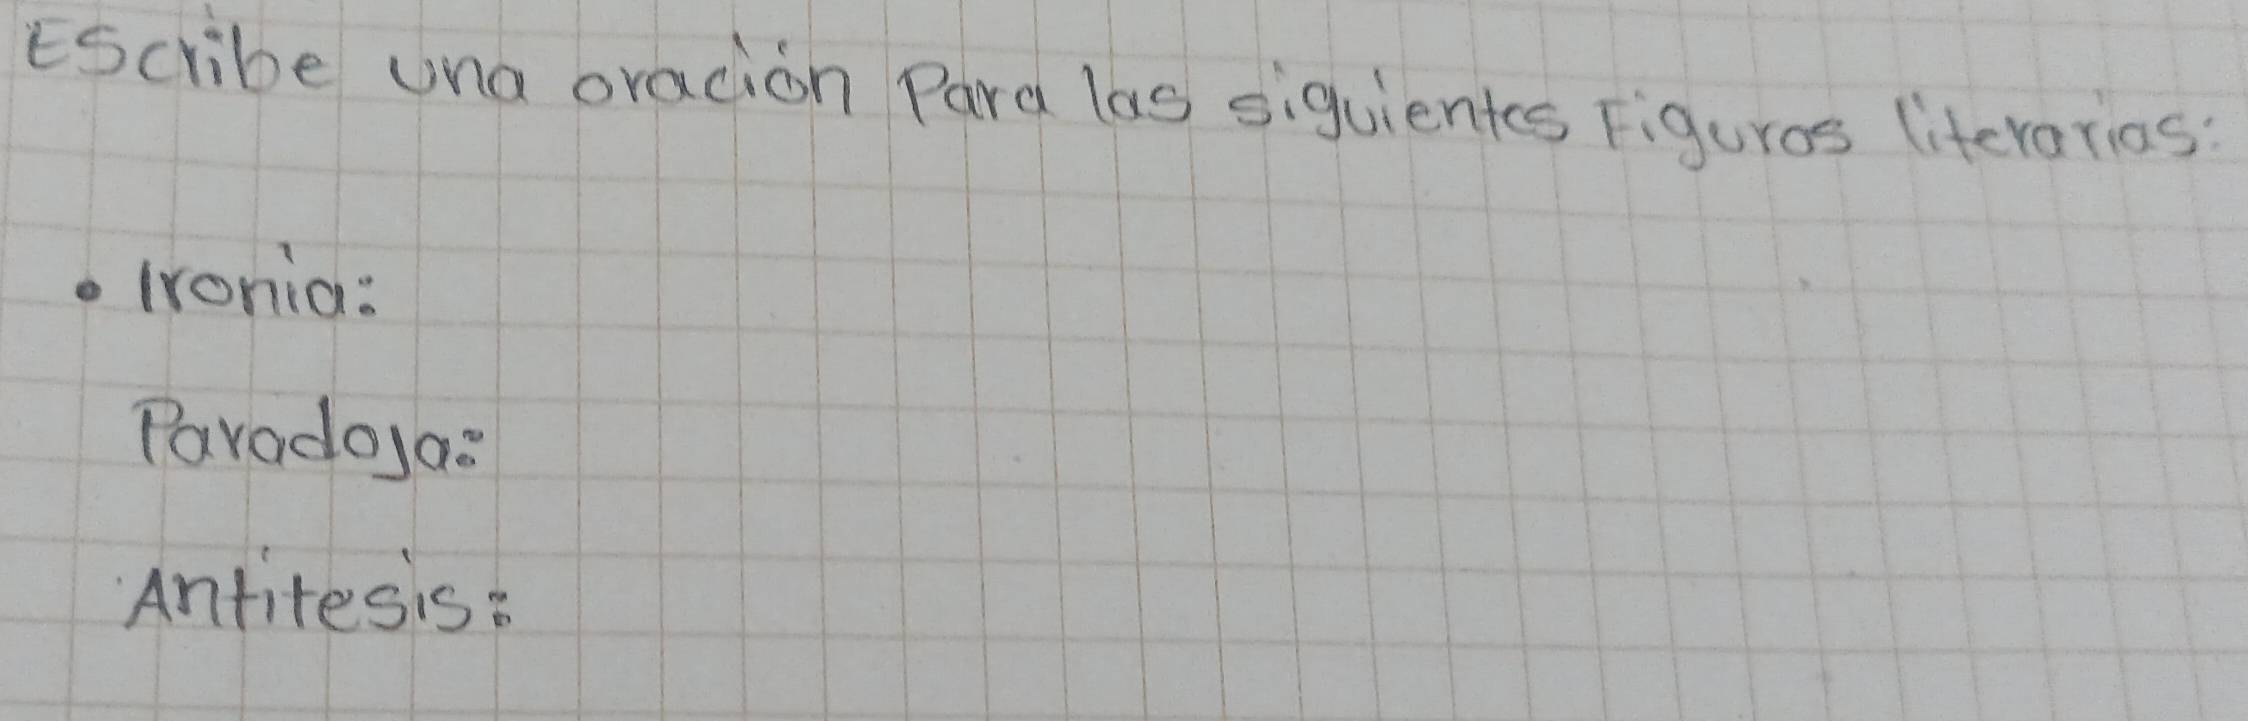 Escribe una oración Para las siguientes Figuras literarias:
• Ironía:
Paradoja:
Antitesis: